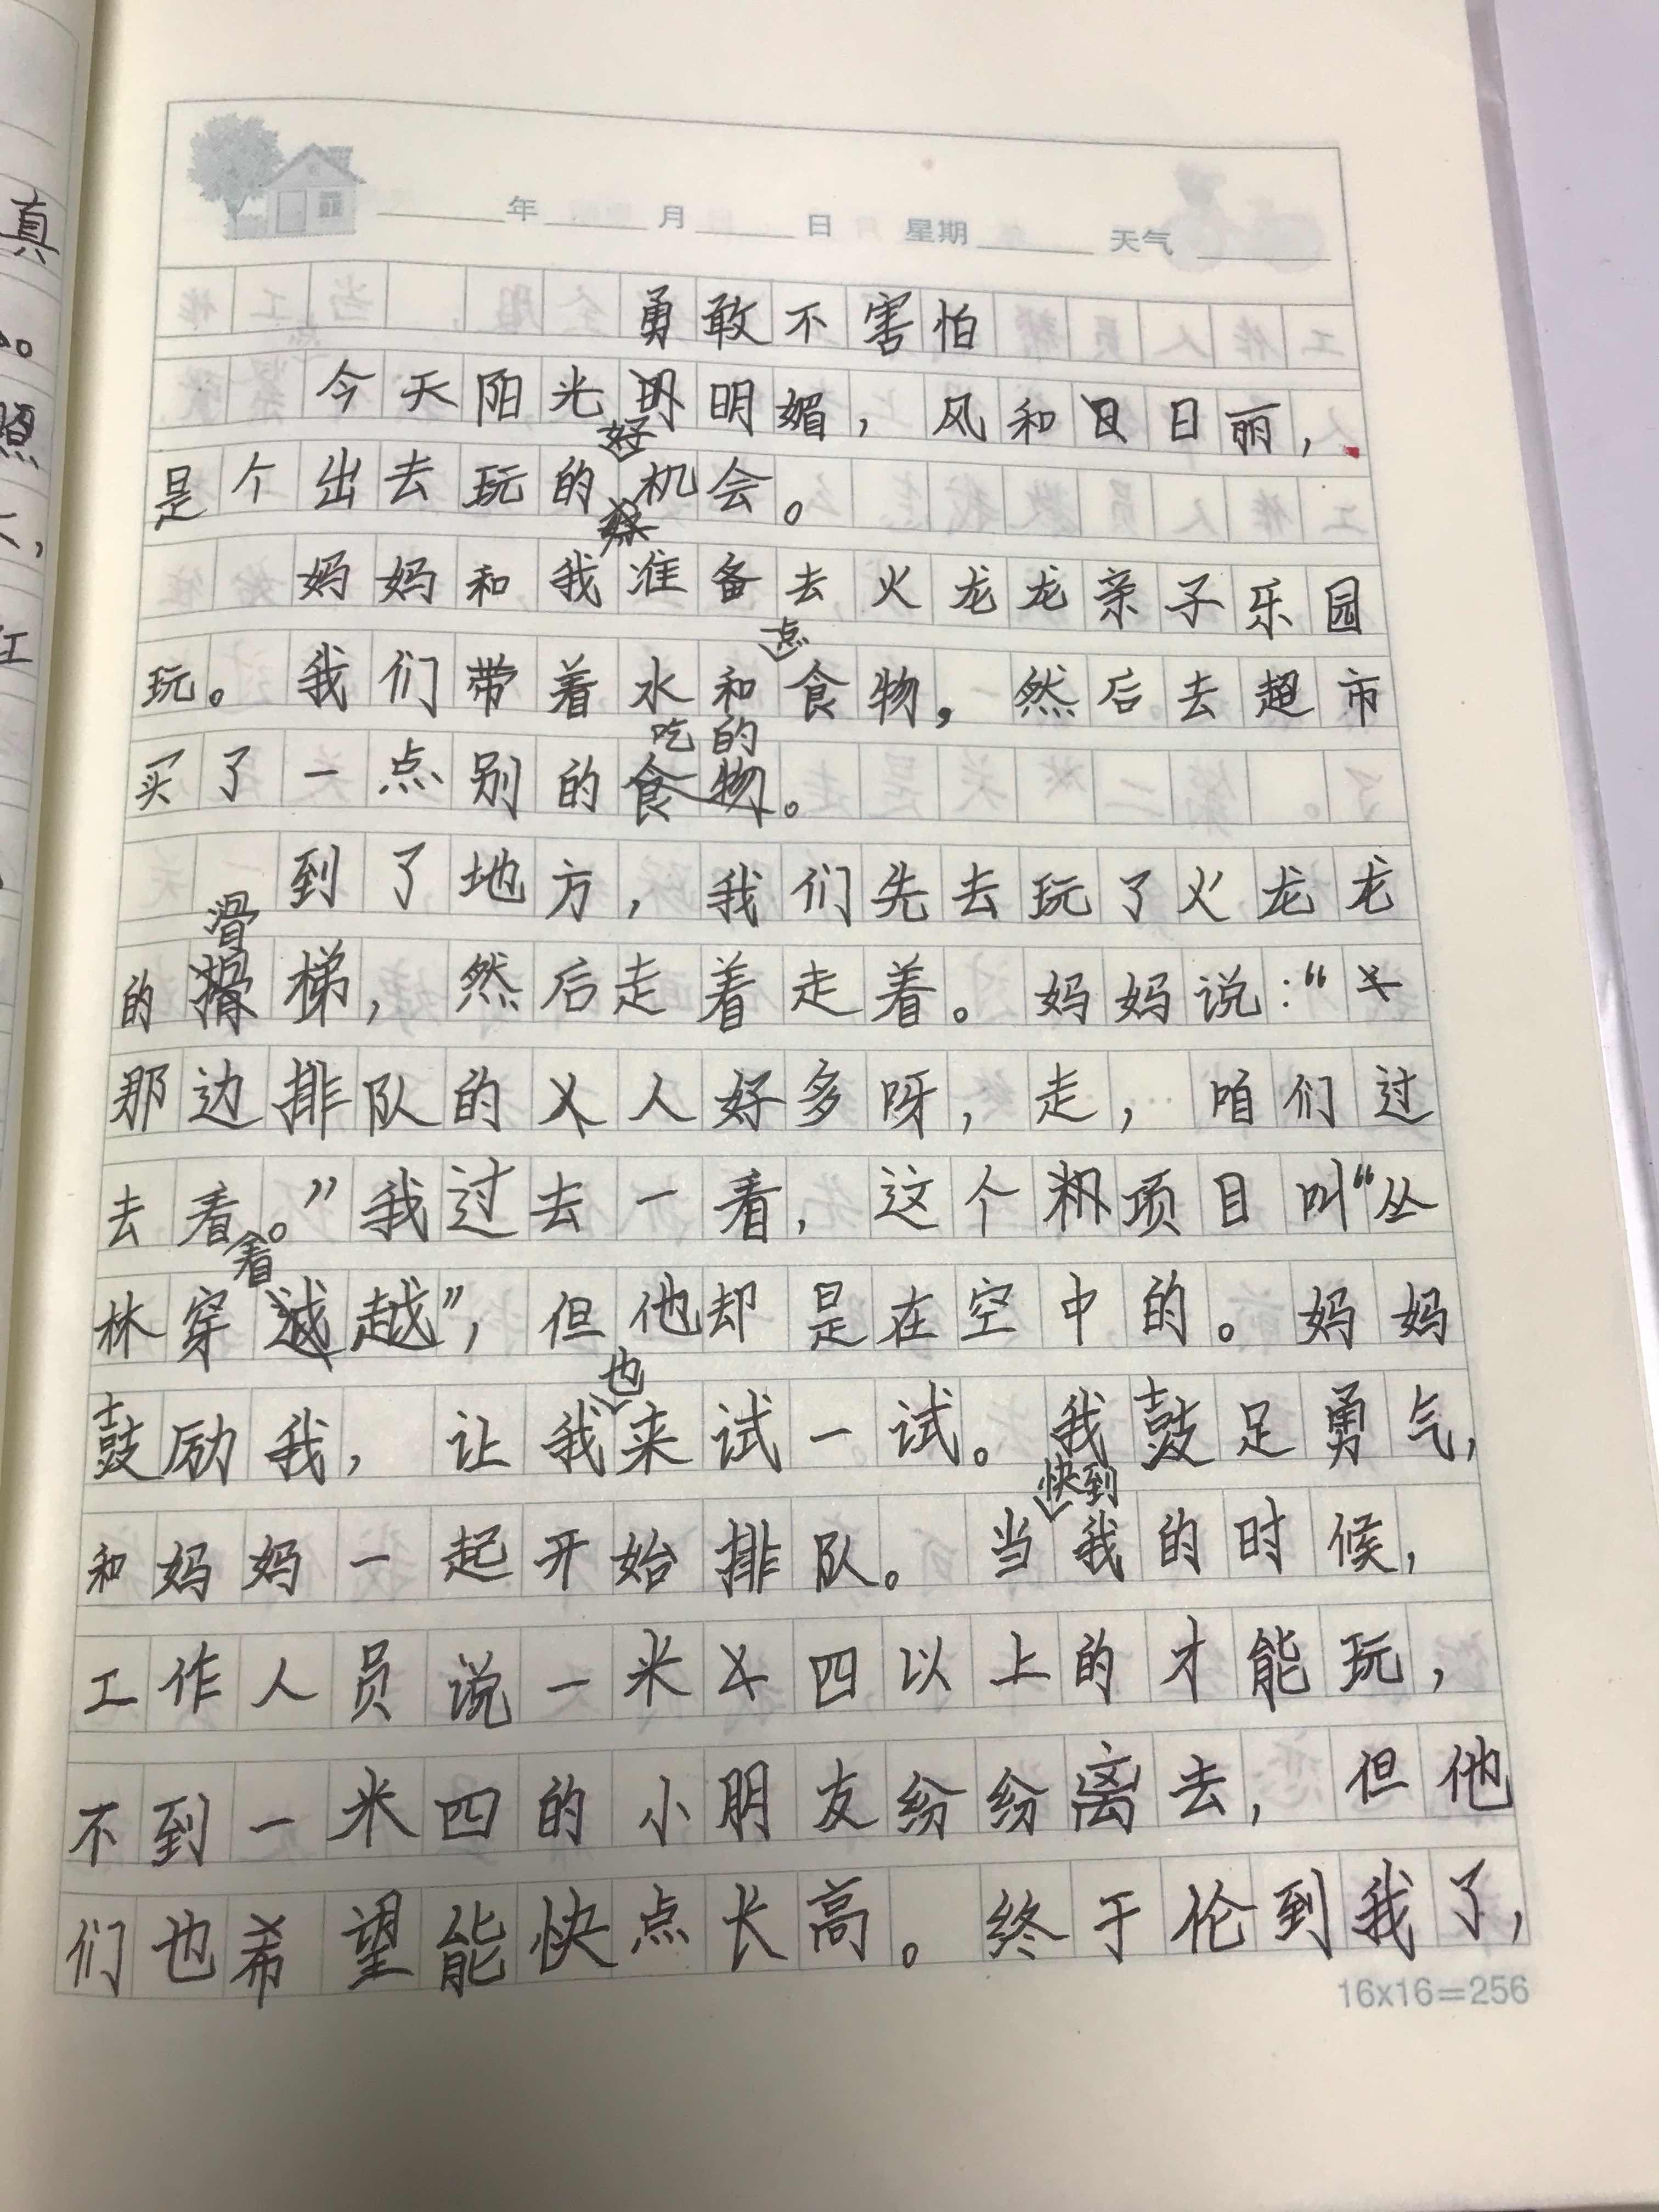 年 月 日 星期 天气
勇敢不害怕
今天阳光明媚，风和日日丽，
是个出去玩的好机会。
妈妈和我准备去火龙龙亲子乐园
玩。我们带着水和点食物，然后去超市
买了一点别的吃的。
到了地方，我们先去玩了火龙龙
的滑梯，然后走着走着。妈妈说：“
那边排队的人好多呀，走，咱们过
去看看。”我过去一看，这个项目叫“丛
林穿越”，但他却是在空中的。妈妈
鼓励我，让我也来试一试。我鼓足勇气，
和妈妈一起开始排队。当快到我的时候，
工作人员说一米四以上的才能玩，
不到一米四的小朋友纷纷离去，但他
们也希望能快点长高。终于伦到我了，
16x16=256
真
照
江